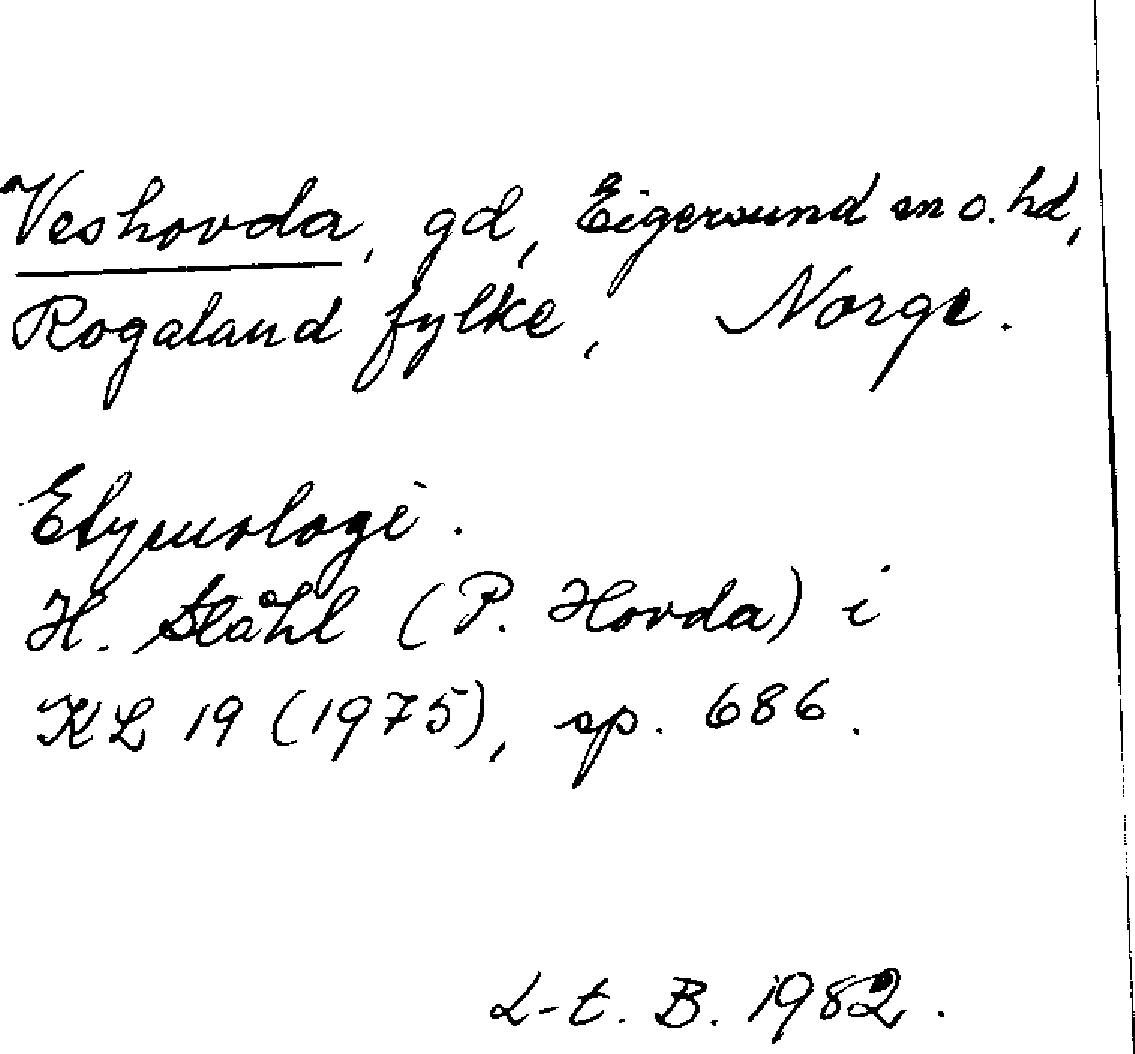 Veshovda, gd, Eigersund sn o. hd,
Rogaland fylke, Norge.
Etymologi.
H. Ståhl (P. Hovda) i
KL 19 (1975), sp. 686.
L-t. B. 1982.